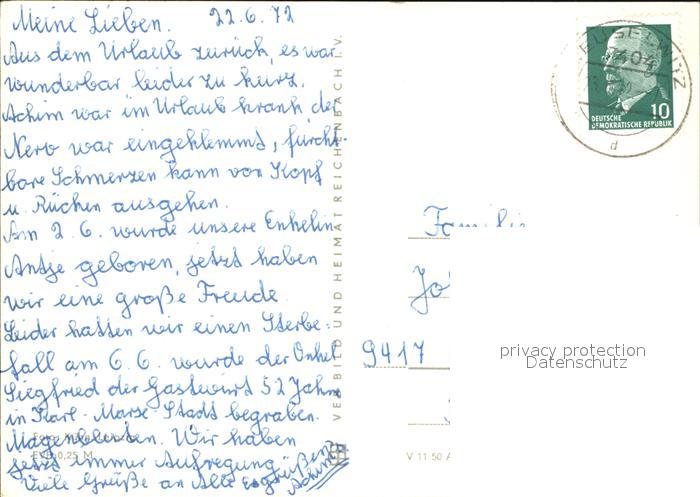 Meine Lieben. 22.6.72
Aus dem Urlaub zurück, es war
wunderbar leider zu kurz.
Achim war im Urlaub krank der
Nerv war eingeklemmt, furcht-
bare Schmerzen kann von Kopf
u. Rücken ausgehen.
Am 2.6. wurde unsere Enkelin
Antje geboren, jetzt haben
wir eine große Freude.
Leider hatten wir einen Sterbe=
fall am 6.6. wurde der Onkel
Siegfried der Gastwirt 52 Jahre
in Karl-Marx-Stadt begraben.
Magenbluten. Wir haben
jetzt immer Aufregung.
Viele Grüße an Alle Es grüßen
Achim
EVP 0,25 M
VERLAG BILD UND HEIMAT REICHENBACH I. V.
V 11 50
MEUSELWITZ
7404
d
10
DEUTSCHE
DEMOKRATISCHE REPUBLIK
Familie
9417
privacy protection
Datenschutz